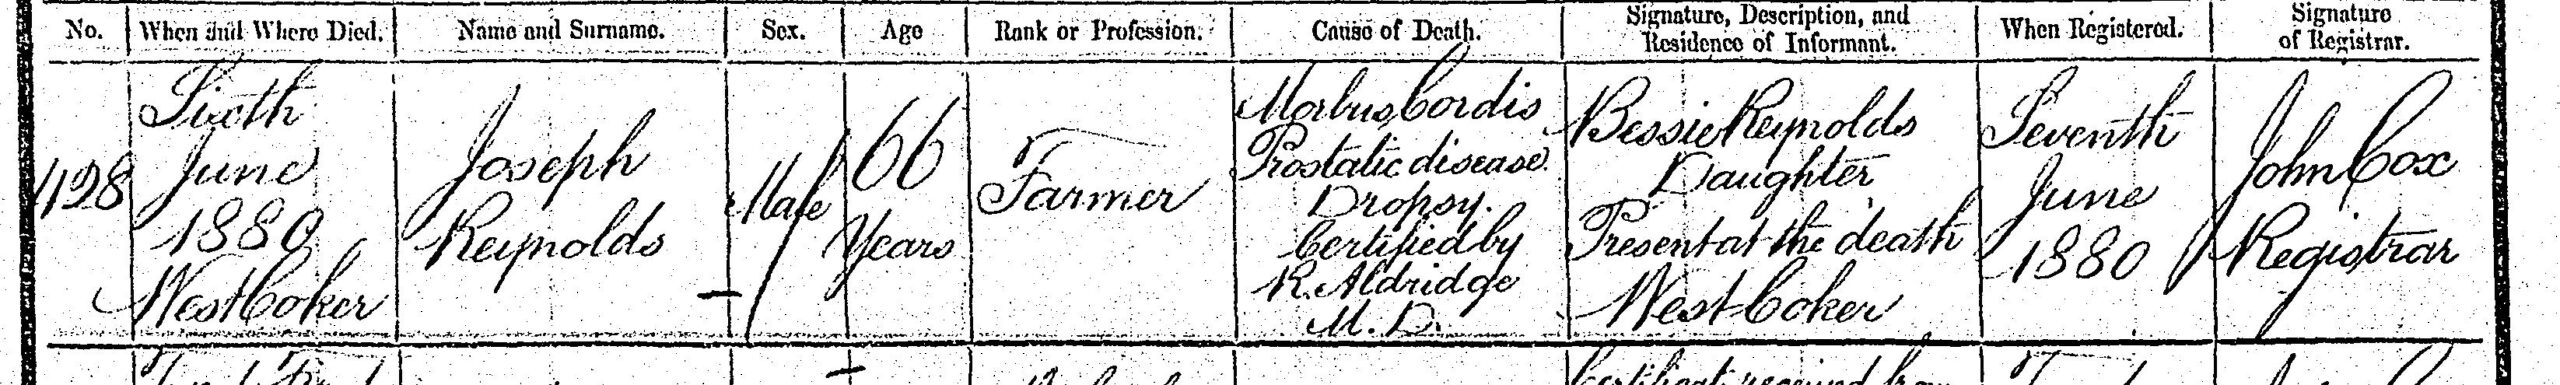 No.
When and Where Died.
Name and Surname.
Sex.
Age
Rank or Profession.
Cause of Death.
Signature, Description, and
Residence of Informant.
When Registered.
Signature
of Registrar.
428
Sixth
June
1880
West Coker
Joseph
Reynolds
Male
66
Years
Farmer
Morbus Cordis
Prostatic disease.
Dropsy.
Certified by
R. Aldridge
M. D.
Bessie Reynolds
Daughter
Present at the death
West Coker
Seventh
June
1880
John Cox
Registrar
Certificate received from